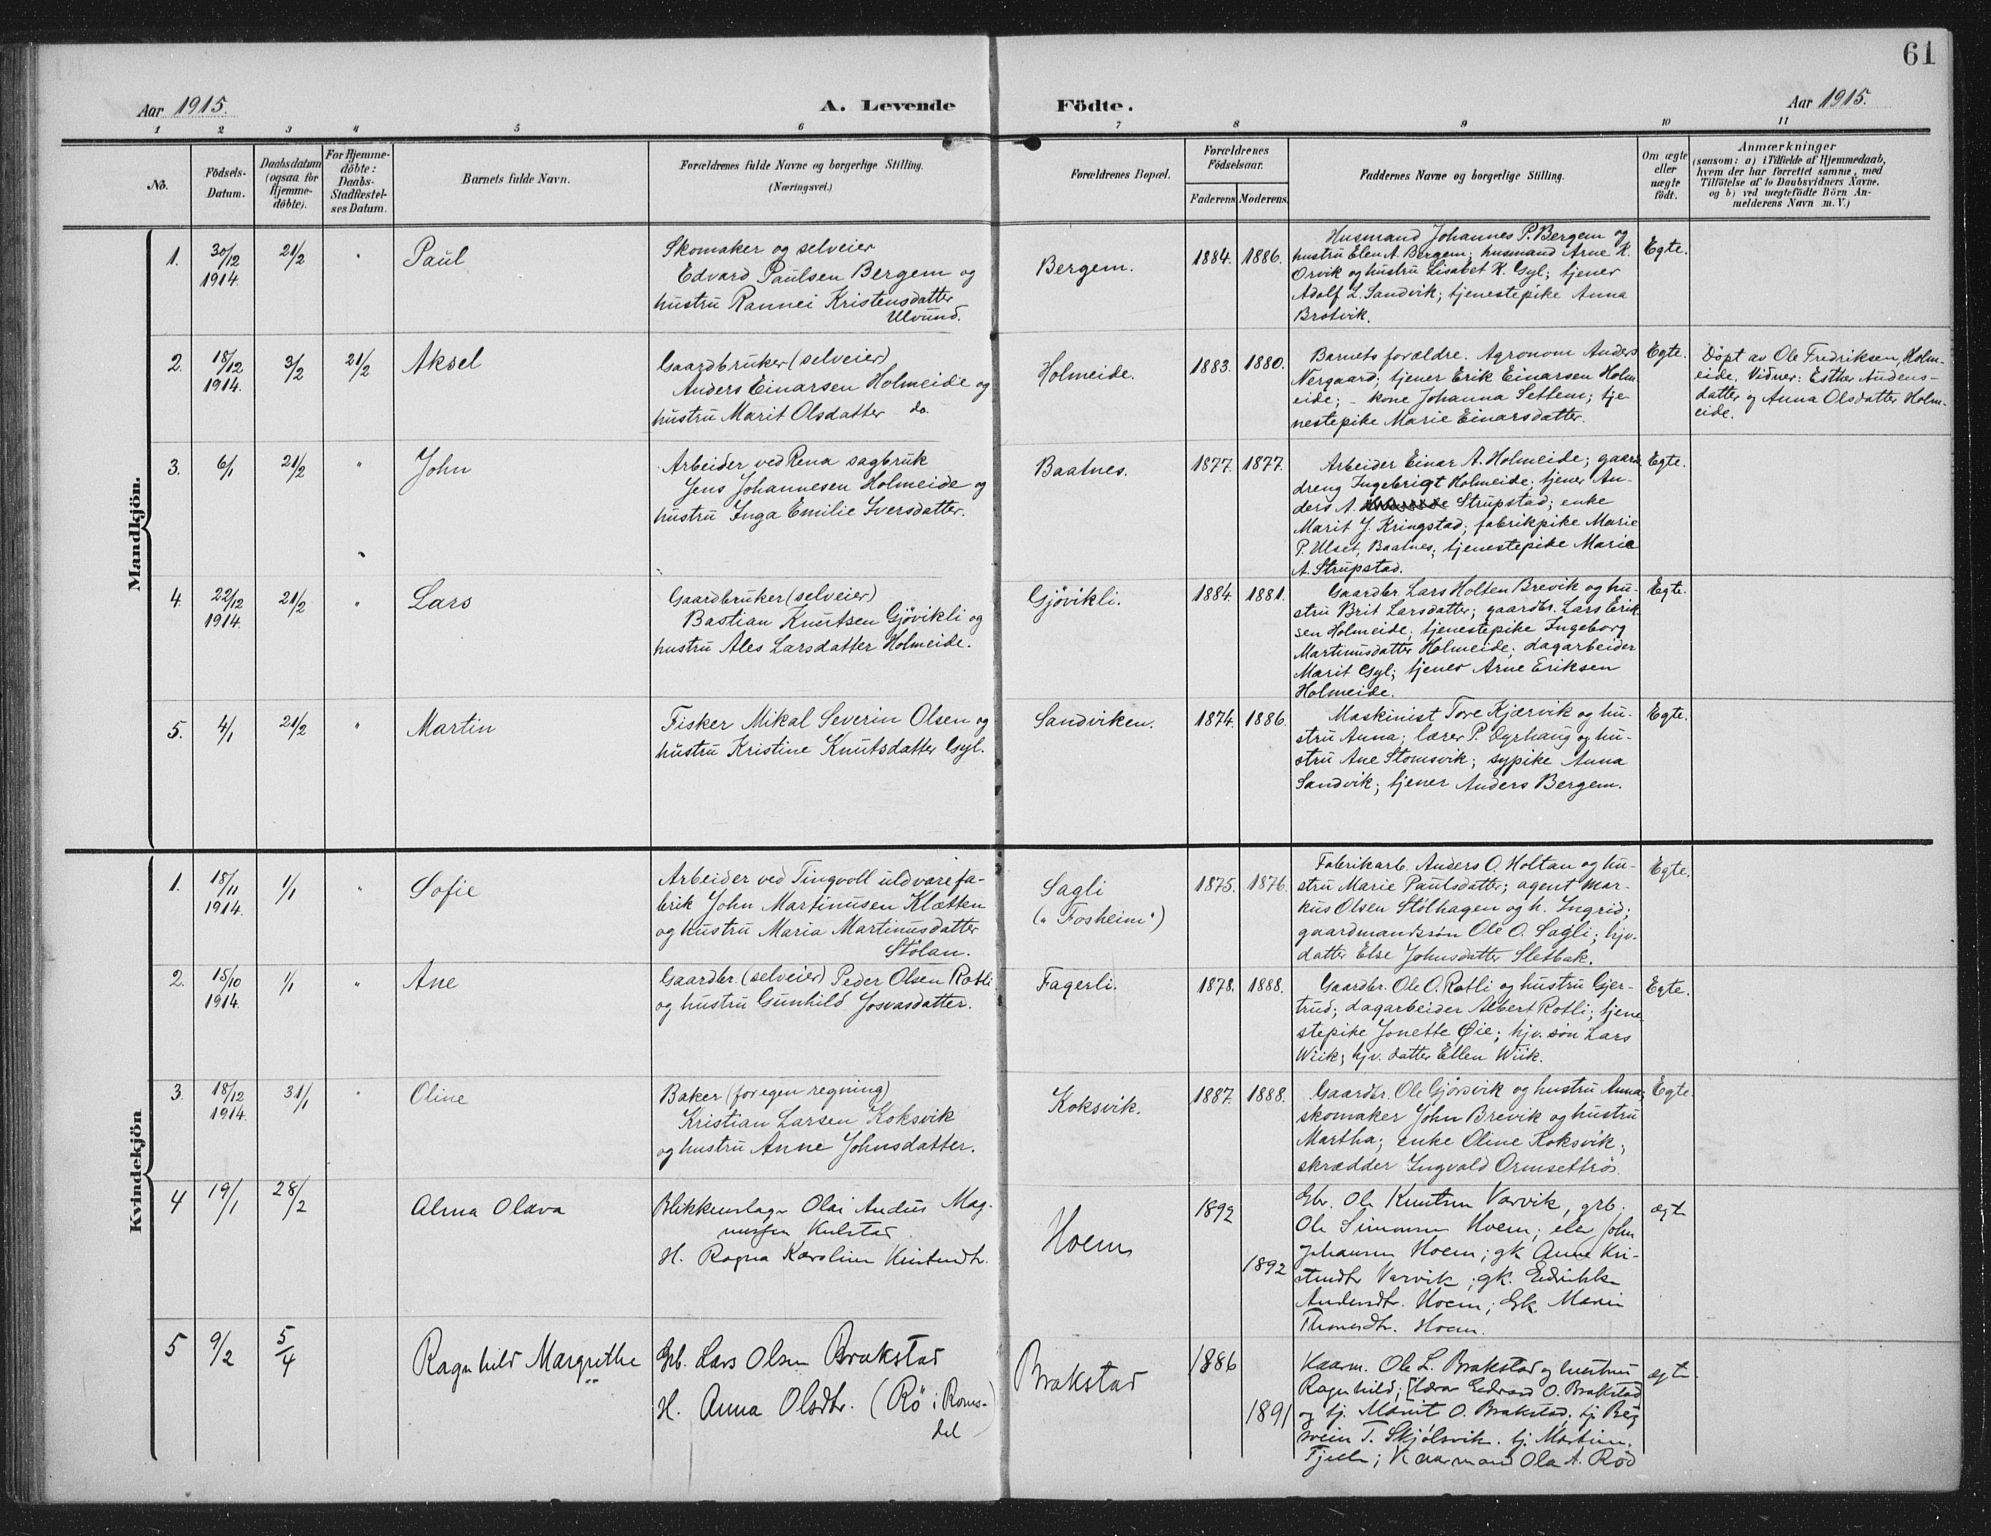 61
Aar 1915.
A. Levende Födte.
Aar 1915.
1 2 3 4 5 6 7 8 9 10 11
No.
Födsels-
Datum.
Daabsdatum
(ogsaa for
Hjemme-
döbte).
For Hjemme-
döbte:
Daabs-
Stadfæstel-
ses Datum.
Barnets fulde Navn.
Forældrenes fulde Navne og borgerlige Stilling.
(Næringsvei.)
Forældrenes Bopæl.
Forældrenes
Födselsaar.
Faderens Moderens
Faddernes Navne og borgerlige Stilling.
Om ægte
eller
uægte
födt.
Anmærkninger
(saasom: a) i Tilfælde af Hjemmedaab,
hvem der har forrettet samme, med
Tilföielse af to Daabsvidners Navne,
og b) ved uægtefödte Börn An-
melderens Navn m. V.)
Mandkjön.
1.
30/12
1914.
21/2
"
Paul
Skomaker og selveier
Edvard Paulsen Bergem og
hustru Rannei Kristensdatter
Ulvund.
Bergem.
1884. 1886.
Husmand Johannes P. Bergem og
hustru Elen A. Bergem; husmand Arne K.
Orvik og hustru Lisabet K. Gyl; tjener
Adolf L. Sandvik; tjenestepike Anna
Brøtvik.
Egte.
2.
18/12
1914.
3/2
21/2
Aksel
Gaardbruker (selveier)
Anders Einarsen Holmeide og
hustru Marit Olsdatter do.
Holmeide.
1883. 1880.
Barnets forældre. Agronom Anders
Nergaard; tjener Erik Einarsen Holm
eide; - kone Johanna Settem; tje
nestepike Marie Einarsdatter.
Egte.
Döpt av Ole Fredriksen, Holm-
eide. Vidner: Esther Audens-
datter og Anna Olsdatter Holm-
eide.
3.
6/1
21/2
"
John
Arbeider ved Rena sagbruk
Jens Johannesen Holmeide og
hustru Inga Emilie Iversdatter.
Baatnes.
1877. 1877.
Arbeider Einar A. Holmeide; gaard
dreng Ingebrigt Holmeide; tjener An-
ders A. Strupstad; enke
Marit J. Kringstad; fabrikpike Marie
P. Ulset, Baatnes; tjenestepike Marie
A. Strupstad.
Egte.
4.
22/12
1914.
21/2
"
Lars
Gaardbruker (selveier)
Bastian Knutsen Gjövikli og
hustru Ales Larsdatter Holmeide.
Gjövikli.
1884. 1881.
Gaardbr. Lars Holten Brevik og hu-
stru Brit Larsdatter; gaardbr. Lars Erik
sen Holmeide; tjenestepike Ingeborg
Martinusdatter Holmeide; dagarbeider
Marit Gyl; tjener Arne Eriksen
Holmeide.
Egte.
5.
4/1
21/2
"
Martin
Fisker Mikal Severin Olsen og
hustru Kristine Knutsdatter Gyl.
Sandviken.
1874. 1886.
Maskinist Tore Kjærvik og hu-
stru Anna; lærer P. Öyrhaug og hu-
stru Ane Stomsvik; sypike Anna
Sandvik; tjener Anders Bergem.
Egte.
Kvindekjön
1.
18/11
1914.
1/1
"
Sofie
Arbeider ved Tingvoll uldvarefa-
brik John Martinusen Kletten
og hustru Maria Martinusdatter
Stölan.
Sagli
("Fosheim")
1875. 1876.
Fabrikarb. Anders O. Holtan og hu-
stru Marie Paulsdatter; agent Mar-
kus Olsen Stölhagen og h. Ingrid;
gaardmandssön Ole O. Sagli; hjv.
datter Else Johnsdatter Sletbak.
Egte.
2.
15/10
1914.
1/1
"
Ane
Gaardbr. (selveier) Peder Olsen Rotli
og hustru Gunhild Josvasdatter.
Fagerli.
1878. 1888.
Gaardbr. Ole O. Rotli og hustru Gjer-
trud; dagarbeider Albert Rotli; tjene
stepike Jonette Öie; hjv. sön Lars
Wiik; hjv. datter Ellen Wiik.
Egte.
3.
18/12
1914.
31/1
"
Oline
Baker (for egen regning)
Kristian Larsen Koksvik
og hustru Anne Johnsdatter.
Koksvik.
1887. 1888.
Gaardbr. Ole Gjörsvik og hustru Anna;
skomaker John Brevik og hustru
Martha; enke Oline Koksvik;
skrædder Ingvald Ormsettrös.
Egte.
4
19/1
28/2
Alma Olava
Blikkenslager Olai Andus Mag-
nussen Kulstad
H. Ragna Karoline Knutsdtr.
Hoem
1892
1892
Gbr. Ole Knutsen Varvik, grb.
Ole Simonsen Hoem; elev John
Johansen Hoem; gk Anne Kri-
stendtr Varvik; gk.
Andersdtr. Hoem; Gk. Marie
Thomasdtr. Hoem.
ægte
5
9/2
5/4
Ragnhild Margrethe
Grb. Lars Olsen Brakstad
H. Anna Olsdtr. (Rö i Roms-
dal)
Brakstad
1886
1891
Kaarm. Ole L. Brakstad og hustru
Ragnhild; Edvard O. Brakstad
og tj. Marit O. Brakstad; tj Berg
svein T. Skjölsvik. tj. Martin
Tjelle; Kaarmand Ola A. Röd
ægte